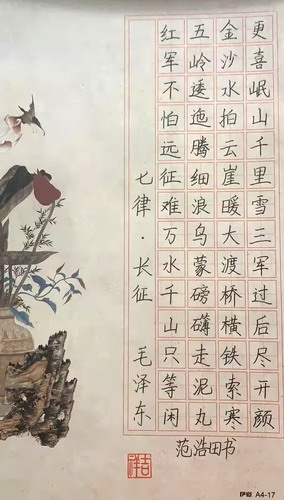 七律·长征 毛泽东
红军不怕远征难万水千山只等闲
五岭逶迤腾细浪乌蒙磅礴走泥丸
金沙水拍云崖暖大渡桥横铁索寒
更喜岷山千里雪三军过后尽开颜
范浩田书
吉祥
A4-17